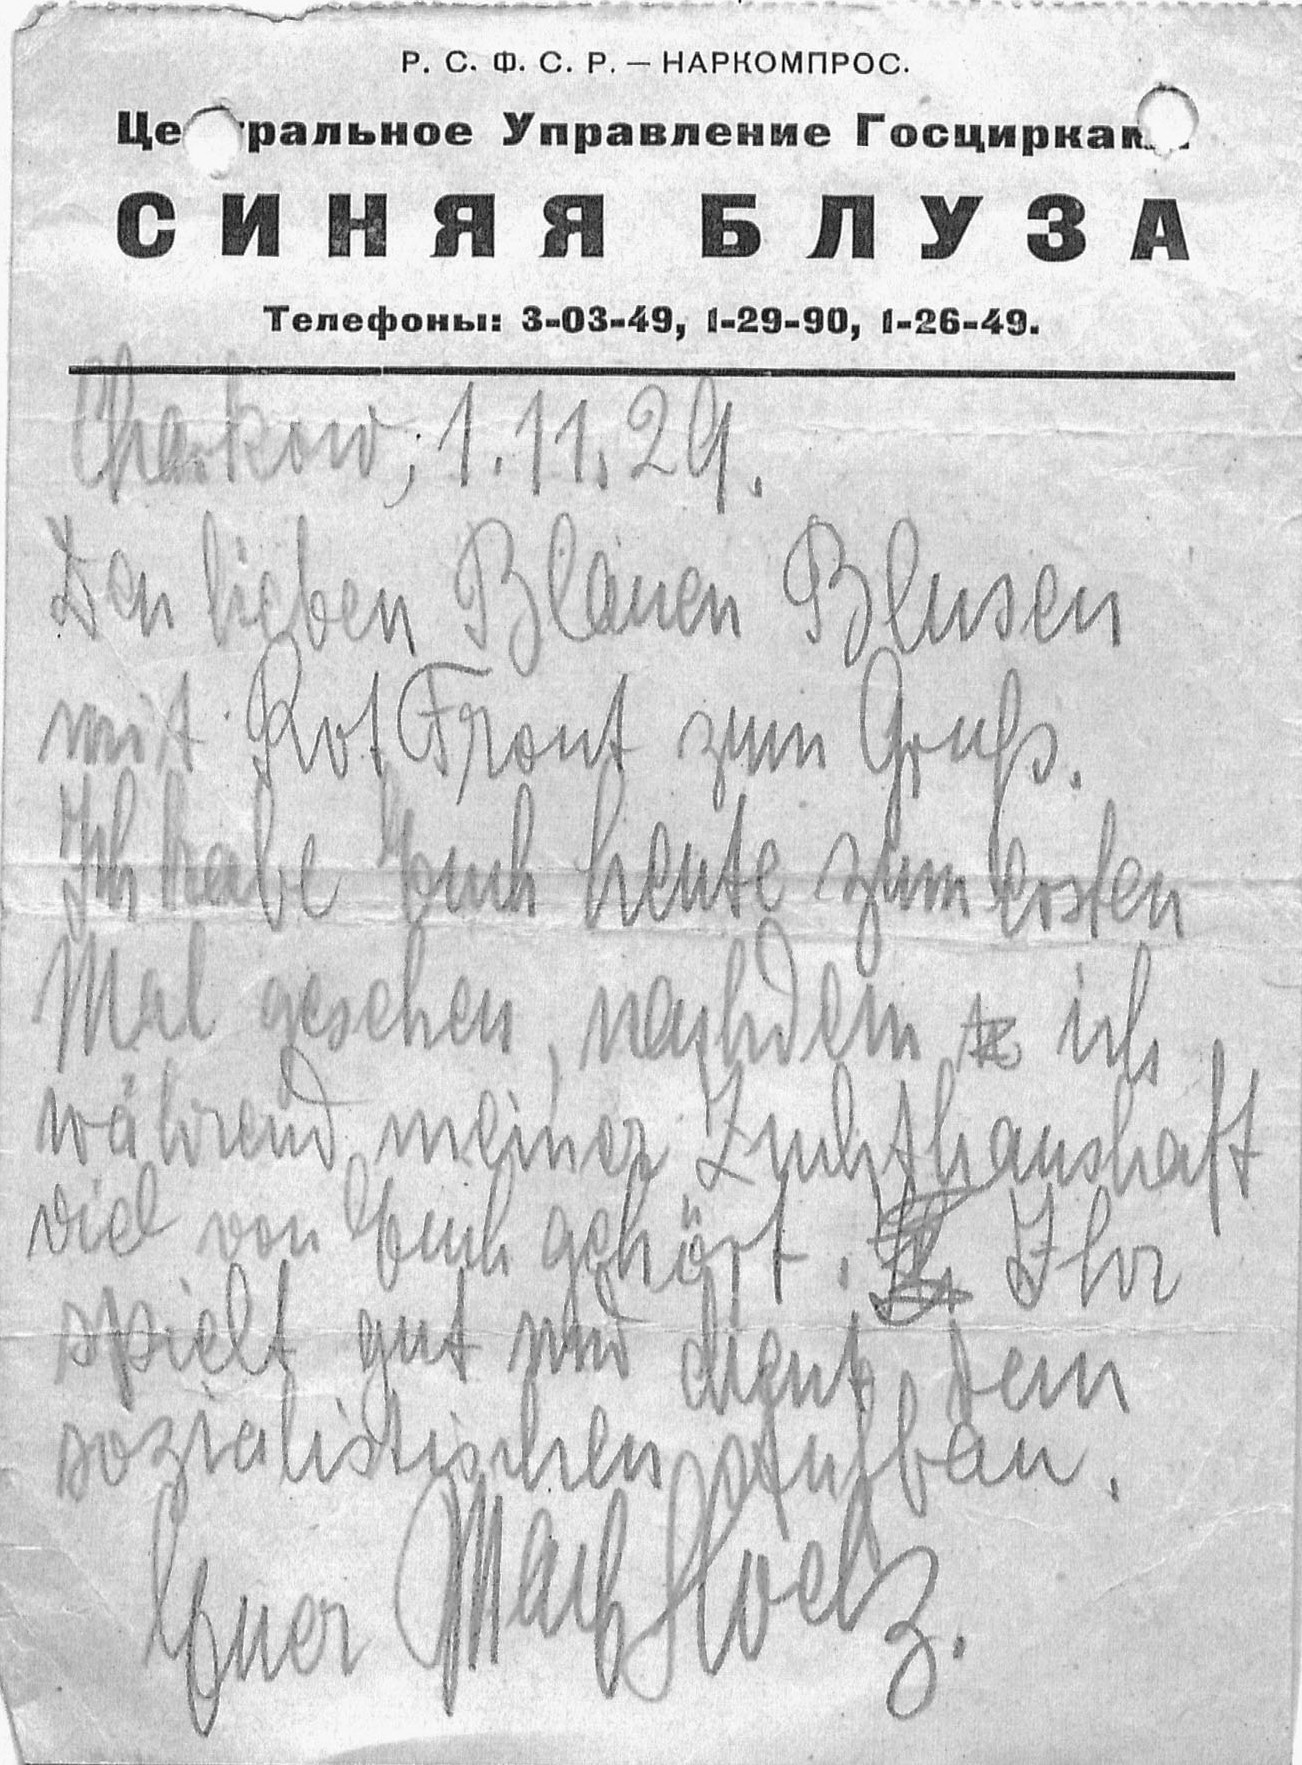 Р. С. Ф. С. Р. — НАРКОМПРОС.
Центральное Управление Госцирками.
СИНЯЯ БЛУЗА
Телефоны: 3-03-49, 1-29-90, 1-26-49.
Charkow, 1.11.29.
Den lieben Blauen Blusen
mit Rot Front zum Gruß.
Ich habe Euch heute zum ersten
Mal gesehen, nachdem ich
während meiner Zuchthaushaft
viel von Euch gehört. Ihr
spielt gut und dient dem
sozialistischen Aufbau.
Euer Max Hoelz.